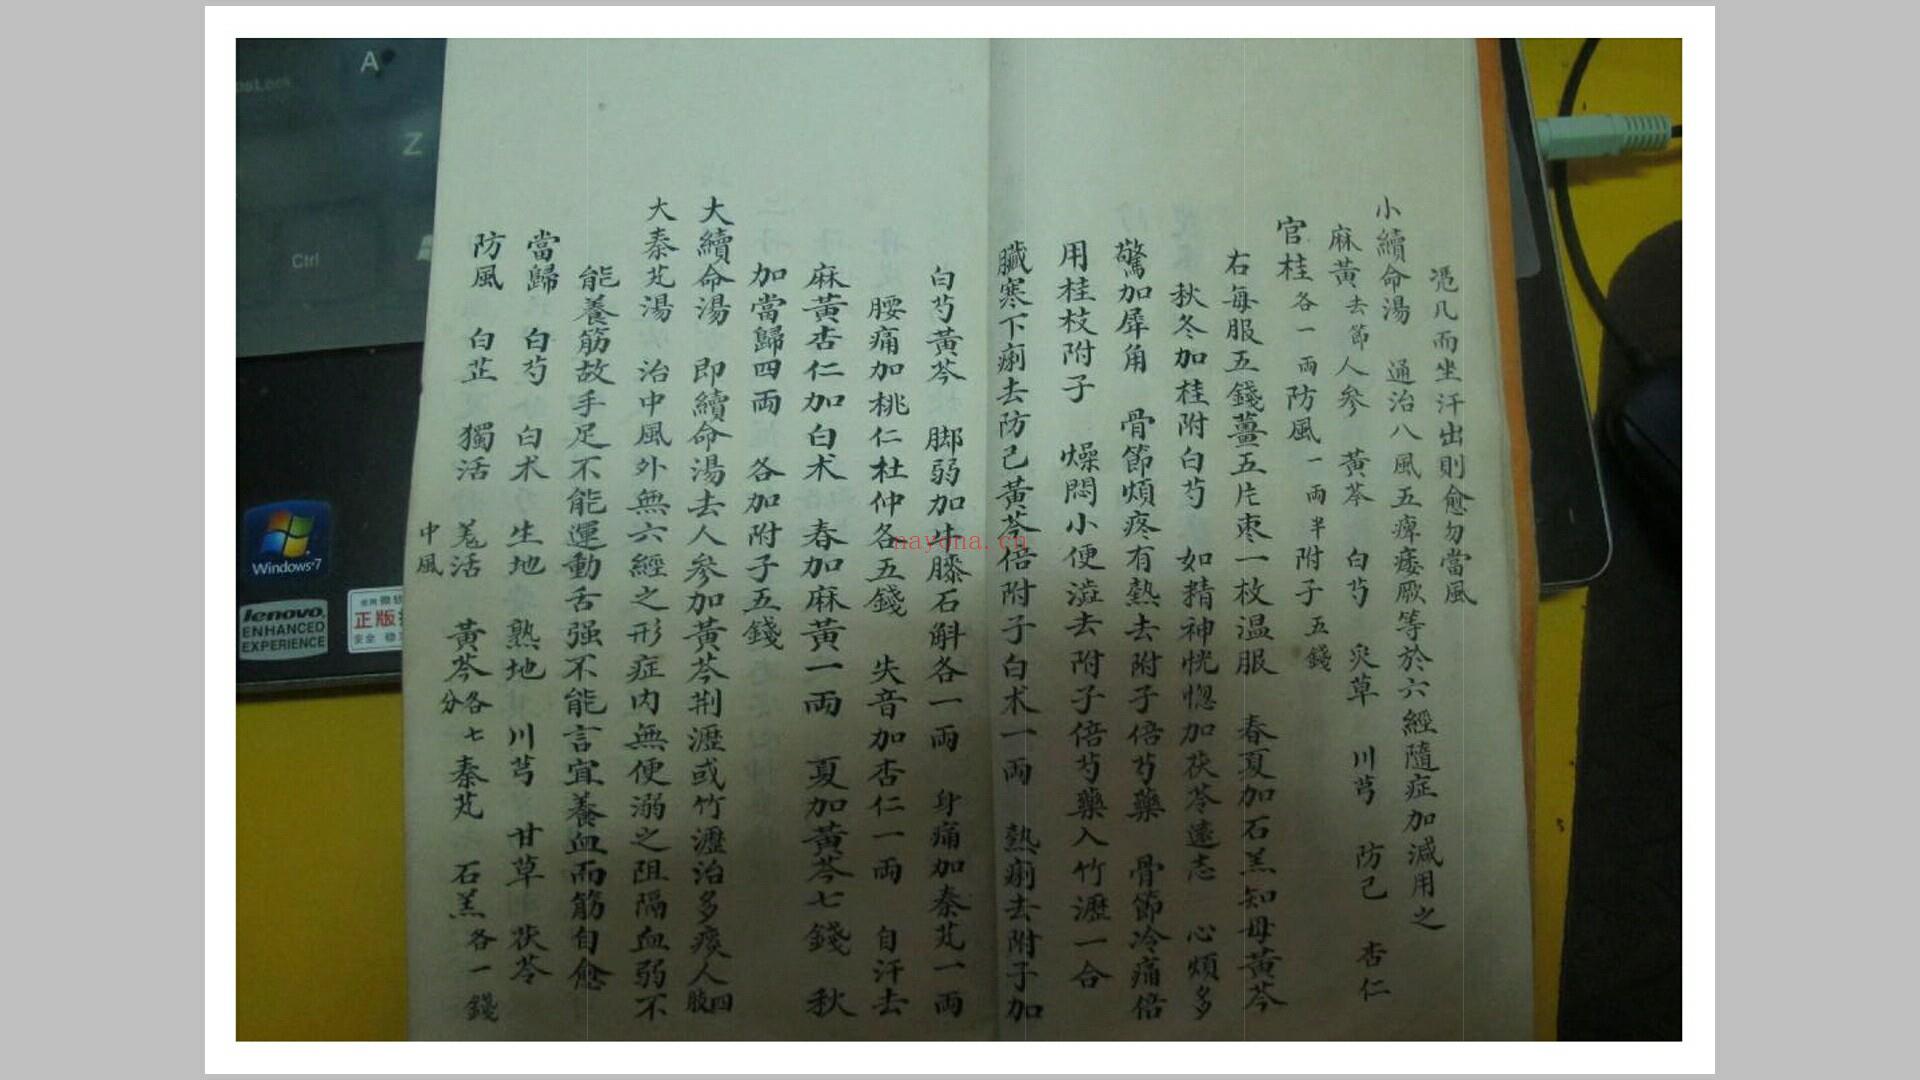 憑几而坐汗出則愈勿當風
小續命湯　通治八風五痺痿厥等於六經隨症加減用之
麻黃去節人參　黃芩　白芍　炙草　川芎　防己　杏仁
官桂各一兩防風一兩半附子五錢
右每服五錢薑五片棗一枚温服　春夏加石羔知母黃芩
秋冬加桂附白芍　如精神恍惚加茯苓遠志　心煩多
驚加犀角　骨節煩疼有熱去附子倍芍藥　骨節冷痛倍
用桂枝附子　燥悶小便澁去附子倍芍藥入竹瀝一合
臟寒下痢去防己黃芩倍附子白术一兩　熱痢去附子加
白芍黃芩　脚弱加牛膝石斛各一兩　身痛加秦艽一兩
腰痛加桃仁杜仲各五錢　失音加杏仁一兩　自汗去
麻黃杏仁加白术　春加麻黃一兩　夏加黃芩七錢　秋
加當歸四兩　各加附子五錢
大續命湯　即續命湯去人參加黃芩荆瀝或竹瀝治多痰人四肢
大秦艽湯　治中風外無六經之形症内無便溺之阻隔血弱不
能養筋故手足不能運動舌强不能言宜養血而筋自愈
當歸　白芍　白术　生地　熟地　川芎　甘草　茯苓
防風　白芷　獨活　羗活　黃芩各七分秦艽　石羔各一錢
中風
nayona.cn
A
Z
Ctrl
Windows 7
lenovo
ENHANCED
EXPERIENCE
正版